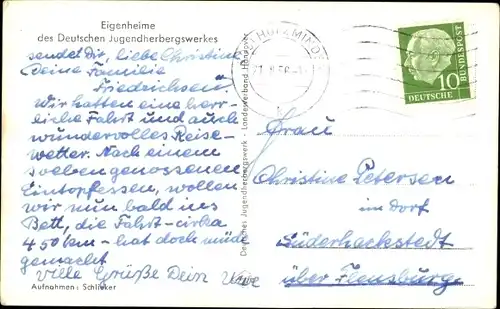 Eigenheime
des Deutschen Jugendherbergswerkes
sendet Dir, liebe Christine
Deine Familie
Friedrichsen"
Wir hatten eine herr-
liche Fahrt und auch
wundervolles Reise-
wetter. Nach einem
soeben genossenen
Eintopfessen, wollen
wir nun bald ins
Bett, die Fahrt - cirka
450 km - hat doch müde
gemacht
Viele Grüße Dein Uwe
Aufnahmen: Schlieker
Deutsches Jugendherbergswerk - Landesverband Hannover
HOLZMINDEN
10
DEUTSCHE
BUNDESPOST
Frau
Christine Petersen
im Dorf
Süderhackstedt
über Flensburg